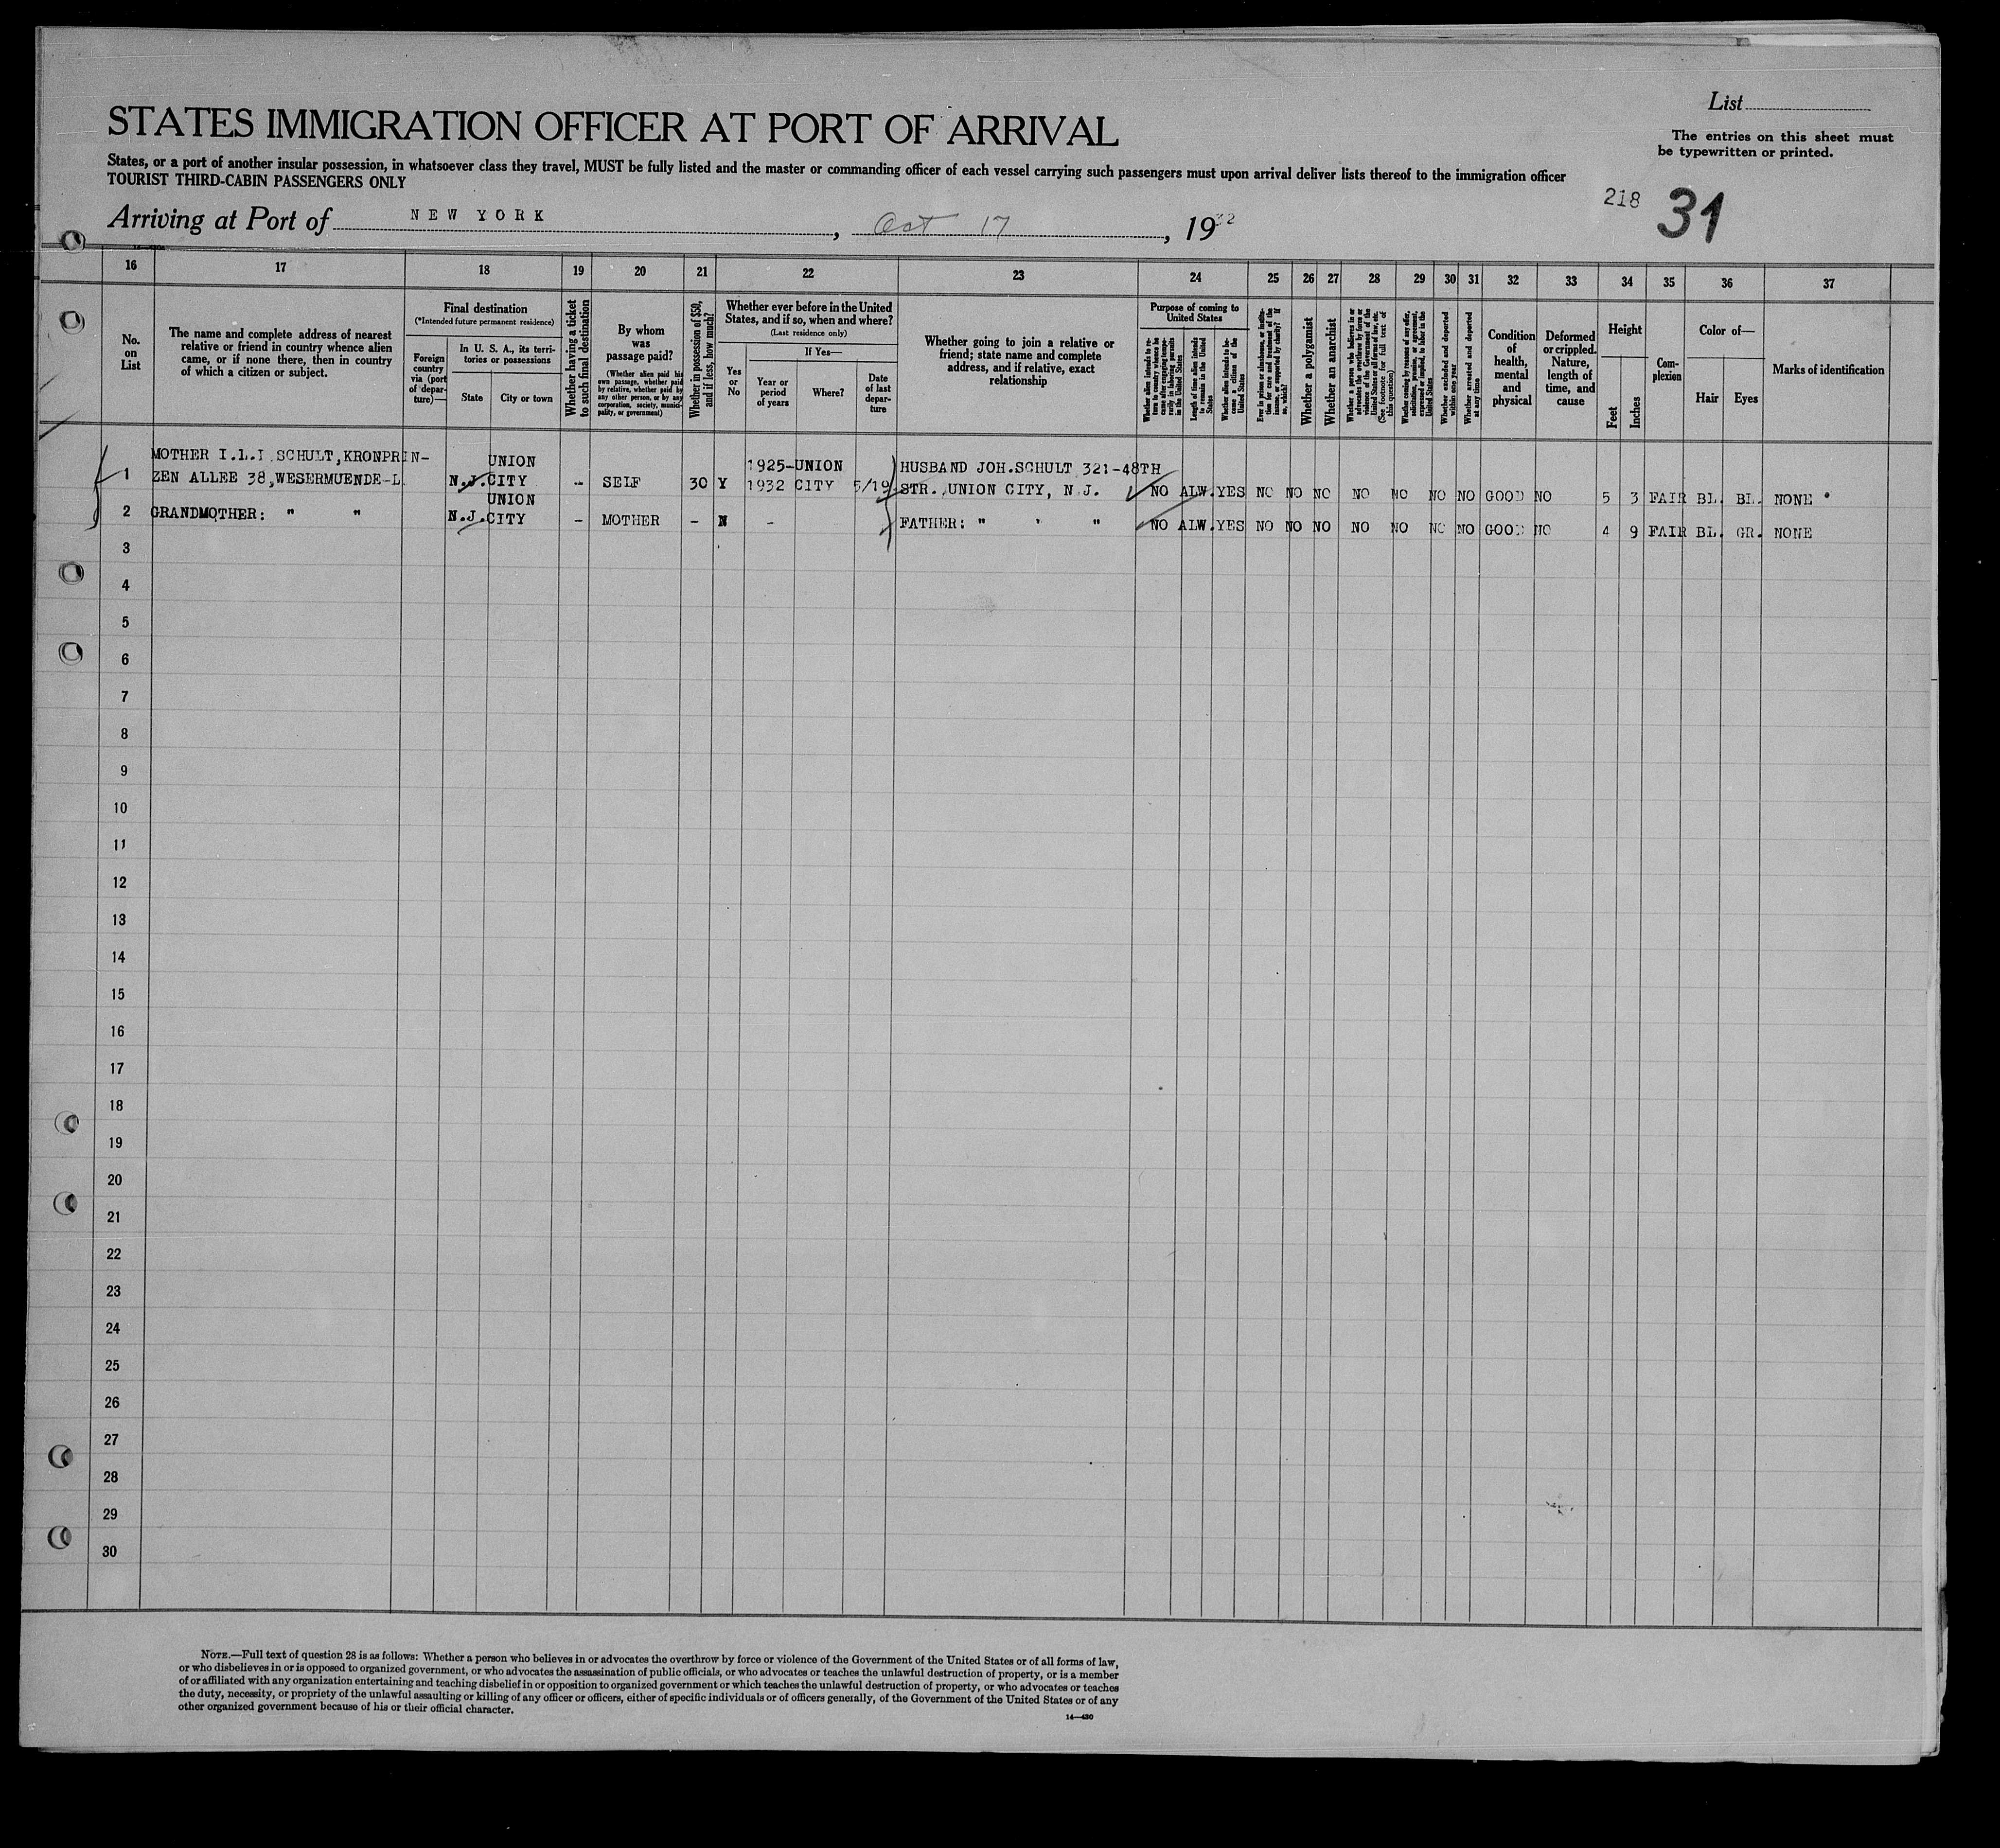 List
The entries on this sheet must
be typewritten or printed.
STATES IMMIGRATION OFFICER AT PORT OF ARRIVAL
States, or a port of another insular possession, in whatsoever class they travel, MUST be fully listed and the master or commanding officer of each vessel carrying such passengers must upon arrival deliver lists thereof to the immigration officer
TOURIST THIRD-CABIN PASSENGERS ONLY
218 31
Arriving at Port of NEW YORK, Oct 17, 1932
16 17 18 19 20 21 22 23 24 25 26 27 28 29 30 31 32 33 34 35 36 37
No.
on
List
The name and complete address of nearest
relative or friend in country whence alien
came, or if none there, then in country
of which a citizen or subject.
Final destination
(*Intended future permanent residence)
Foreign
country
via (port
of depar-
ture)—
In U. S. A., its terri-
tories or possessions
State
City or town
Whether having a ticket
to such final destination
By whom
was
passage paid?
(Whether alien paid his
own passage, whether paid
by relative, whether paid by
any other person, or by any
corporation, society, munici-
pality, or government)
Whether in possession of $50,
and if less, how much?
Whether ever before in the United
States, and if so, when and where?
(Last residence only)
Yes
or
No
If Yes—
Year or
period
of years
Where?
Date
of last
depar-
ture
Whether going to join a relative or
friend; state name and complete
address, and if relative, exact
relationship
Purpose of coming to
United States
Whether alien intends to re-
turn to country whence he
came after engaging tempo-
rarily in laboring pursuits
in the United States
Length of time alien intends
to remain in the United
States
Whether alien intends to be-
come a citizen of the
United States
Ever in prison or almshouse, or institu-
tion for care and treatment of the
insane, or supported by charity? If
so, which?
Whether a polygamist
Whether an anarchist
Whether a person who believes in or
advocates the overthrow by force or
violence of the Government of the
United States or all forms of law, etc.
(See footnote for full text of
this question)
Whether coming by reason of any offer,
solicitation, promise, or agreement,
expressed or implied, to labor in the
United States
Whether excluded and deported
within one year
Whether arrested and deported
at any time
Condition
of
health,
mental
and
physical
Deformed
or crippled.
Nature,
length of
time, and
cause
Height
Feet
Inches
Com-
plexion
Color of—
Hair
Eyes
Marks of identification
MOTHER I.L.I.SCHULT,KRONPRIN- UNION 1925-UNION HUSBAND JOH.SCHULT 321-48TH
1 ZEN ALLEE 38,WESERMUENDE-L. N.J. CITY - SELF 30 Y 1932 CITY 5/19 STR.,UNION CITY, N.J. NO ALW. YES NO NO NO NO NO NO NO GOOD NO 5 3 FAIR BL. BL. NONE
UNION
2 GRANDMOTHER: " " N.J. CITY - MOTHER - N - FATHER: " ' " NO ALW. YES NO NO NO NO NO NO NO GOOD NO 4 9 FAIR BL. GR. NONE
3
4
5
6
7
8
9
10
11
12
13
14
15
16
17
18
19
20
21
22
23
24
25
26
27
28
29
30
NOTE.—Full text of question 28 is as follows: Whether a person who believes in or advocates the overthrow by force or violence of the Government of the United States or of all forms of law,
or who disbelieves in or is opposed to organized government, or who advocates the assassination of public officials, or who advocates or teaches the unlawful destruction of property, or is a member
of or affiliated with any organization entertaining and teaching disbelief in or opposition to organized government or which teaches the unlawful destruction of property, or who advocates or teaches
the duty, necessity, or propriety of the unlawful assaulting or killing of any officer or officers, either of specific individuals or of officers generally, of the Government of the United States or of any
other organized government because of his or their official character.
14—430